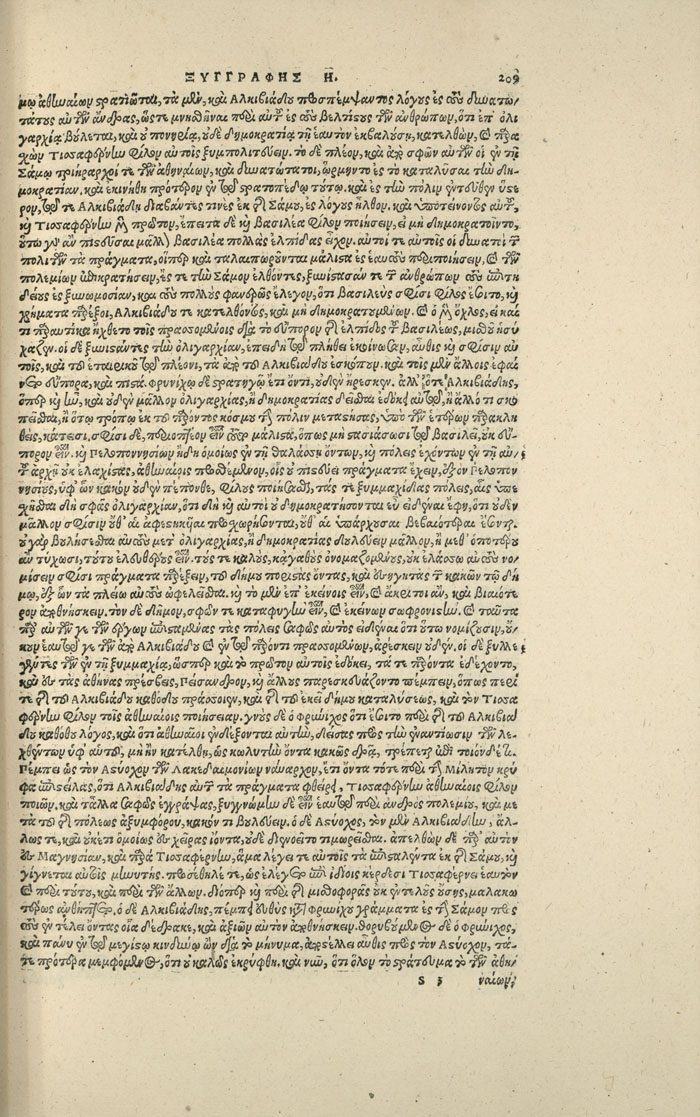 ΞΥΓΓΡΑΦΗΣ Η. 209
μῳ ἀθηναίων στρατιῶται, τὰ μὲν, καὶ Ἀλκιβιάδου προσπέμψαντος λόγους ἐς τοὺς δυνατω/
τάτους αὐτῶν ἄνδρας, ὥστε μνησθῆναι περὶ αὐτοῦ ἐς τοὺς βελτίστους τῶν ἀνθρώπων, ὅτι ἐπ' ὀλι
γαρχίᾳ βούλεται, καὶ οὐ πονηρίᾳ, οὐδὲ δημοκρατίᾳ τῇ ἑαυτὸν ἐκβαλούσῃ, κατελθὼν, καὶ παρα
χὼν Τισσαφέρνην φίλον αὐτοῖς ξυμπολιτεύειν. τὸ δὲ πλέον, καὶ ἀπὸ σφῶν αὐτῶν οἱ ἐν τῇ
Σάμῳ τριήραρχοί τε τῶν ἀθηναίων, καὶ δυνατώτατοι, ὥρμηντο ἐς τὸ καταλῦσαι τὴν δη-
μοκρατίαν. καὶ ἐκινήθη πρότερον ἐν τῷ στρατοπέδῳ τοῦτο. καὶ ἐς τὴν πόλιν ἐντεῦθεν ὕστε
ρον, τῷ τε Ἀλκιβιάδῃ διαβάντες τινὲς ἐκ τῆς Σάμου, ἐς λόγους ἦλθον. καὶ ὑποτείνοντος αὐτοῦ,
καὶ Τισσαφέρνην μὲν πρῶτον, ἔπειτα δὲ καὶ βασιλέα φίλον ποιήσειν, εἰ μὴ δημοκρατοῖντο,
οὕτω γὰρ ἂν πιστεῦσαι μᾶλλον βασιλέα πολλὰς ἐλπίδας εἶχον. αὐτοί τε αὐτοῖς οἱ δυνατοὶ τῶν
πολιτῶν τὰ πράγματα, οἵπερ καὶ ταλαιπωροῦνται μάλιστα ἐς ἑαυτοὺς περιποιήσειν, καὶ τῶν
πολεμίων ἐπικρατήσειν, ἔς τε τὴν Σάμον ἐλθόντες, ξυνίστασάν τε τῶν ἀνθρώπων τοὺς ἐπιτη
δείους ἐς ξυνωμοσίαν, καὶ τοὺς πολλοὺς φανερῶς ἔλεγον, ὅτι βασιλεὺς σφίσι φίλος ἔσοιτο, καὶ
χρήματα παρέξοι, Ἀλκιβιάδου τε κατελθόντος, καὶ μὴ δημοκρατουμένων. καὶ ὁ μὲν ὄχλος, εἰ καί
τι παραυτίκα ἤχθετο τοῖς πρασσομένοις διὰ τὸ εὔπορον τῆς ἐλπίδος τοῦ βασιλέως, μισθοῦ ἡσύ
χαζεν. οἱ δὲ ξυνιστάντες τὴν ὀλιγαρχίαν, ἐπειδὴ τῷ πλήθει ἐκοίνωσαν, αὖθις καὶ σφίσιν αὐ
τοῖς, καὶ τοῦ ἑταιρικοῦ τῷ πλέονι, τὰ ἀπὸ τοῦ Ἀλκιβιάδου ἐσκόπουν. καὶ τοῖς μὲν ἄλλοις ἐφαί
νετο εὔπορα, καὶ πιστά. Φρυνίχῳ δὲ στρατηγῷ ἔτι ὄντι, οὐδὲν ἤρεσκεν. ἀλλ' ὅτε Ἀλκιβιάδης,
ὅπερ καὶ ἦν, καὶ οὐδὲν μᾶλλον ὀλιγαρχίας, ἢ δημοκρατίας δεῖσθαι ἐδόκει αὐτῷ, ἢ ἄλλο τι σκο
πεῖσθαι, ἢ ὅτῳ τρόπῳ ἐκ τοῦ παρόντος κόσμου τὴν πόλιν μεταστήσας, ὑπὸ τῶν ἑτέρων παρακλη
θεὶς, κάτεισι, σφίσι δὲ, περιοπτέον εἶναι τοῦτο μάλιστα, ὅπως μὴ στασιάσωσι τῷ βασιλεῖ, οὐκ εὔ-
πορον εἶναι. καὶ Πελοποννησίων ἤδη ὁμοίως ἐν τῇ θαλάσσῃ ὄντων, καὶ πόλεις ἐχόντων ἐν τῇ αὐ/
τοῦ ἀρχῇ οὐκ ἐλαχίστας, ἀθηναίοις προσθέμενον, οἷς οὐ πιστεύει πράγματα ἔχειν, ἐξὸν Πελοπον
νησίους, ὑφ' ὧν κακὸν οὐδὲν πέπονθε, φίλους ποιήσασθαι, τάς τε ξυμμαχίδας πόλεις, αἷς ὑπε
σχῆσθαι δὴ σφᾶς ὀλιγαρχίαν, ὅτι δὴ καὶ αὐτοὶ οὐ δημοκρατήσονται εὖ εἰδέναι ἔφη, ὅτι οὐδὲν
μᾶλλον σφίσιν οὔθ' αἱ ἀφεστηκυῖαι προσχωρήσονται, οὔθ' αἱ ὑπάρχουσαι βεβαιότεραι ἔσονται.
οὐ γὰρ βουλήσεσθαι αὐτοὺς μετ' ὀλιγαρχίας, ἢ δημοκρατίας δουλεύειν μᾶλλον, ἢ μεθ' ὁποτέρου
ἂν τύχωσι, τούτου ἐλευθέρους εἶναι. τούς τε καλοὺς, κἀγαθοὺς ὀνομαζομένους, οὐκ ἐλάσσω αὐτοὺς νο/
μίζειν σφίσι πράγματα παρέξειν, τοῦ δήμου ποριστὰς ὄντας, καὶ ἐσηγητὰς τῶν κακῶν τῷ δή
μῳ, ἐξ ὧν τὰ πλείω αὐτοὺς ὠφελεῖσθαι. καὶ τὸ μὲν ἐπ' ἐκείνοις εἶναι, καὶ ἄκριτοι ἂν, καὶ βιαιότε
ρον ἀποθνήσκειν. τὸν δὲ δῆμον, σφῶν τε καταφυγὴν εἶναι, καὶ ἐκείνων σωφρονιστήν. καὶ ταῦτα
παρ' αὐτῶν γε τῶν ἔργων ἐπισταμένας τὰς πόλεις σαφῶς αὐτὸς εἰδέναι ὅτι οὕτω νομίζουσιν, οὔ/
κουν ἑαυτῷ γε τῶν ἀπ' Ἀλκιβιάδου καὶ ἐν τῷ παρόντι πρασσομένων, ἀρέσκειν οὐδέν. οἱ δὲ ξυλλε
γέντες τῶν ἐν τῇ ξυμμαχίᾳ, ὥσπερ καὶ τὸ πρῶτον αὐτοῖς ἐδόκει, τά τε παρόντα ἐδέχοντο,
καὶ ἐς τὰς ἀθήνας πρέσβεις, Πείσανδρον, καὶ ἄλλους παρεσκευάζοντο πέμπειν, ὅπως περί
τε τῆς τοῦ Ἀλκιβιάδου καθόδου πράσσοιεν, καὶ τῆς τοῦ ἐκεῖ δήμου καταλύσεως, καὶ τὸν Τισσα
φέρνην φίλον τοῖς ἀθηναίοις ποιήσειαν. γνοὺς δὲ ὁ Φρύνιχος ὅτι ἔσοιτο περὶ τῆς τοῦ Ἀλκιβιά
δου καθόδου λόγος, καὶ ὅτι ἀθηναῖοι ἐνδέξονται αὐτὴν, δείσας πρὸς τὴν ἐναντίωσιν τῶν λε-
χθέντων ὑφ' αὑτοῦ, μὴ ἢν κατέλθῃ, ὡς κωλυτὴν ὄντα κακῶς δρᾷ, τρέπεται ἐπὶ τοιόνδε τι.
Πέμπει ὡς τὸν Ἀστύοχον τὸν Λακεδαιμονίων ναύαρχον, ἔτι ὄντα τότε περὶ τὴν Μίλητον κρύ
φα ἐπιστείλας, ὅτι Ἀλκιβιάδης αὐτῶν τὰ πράγματα φθείρει, Τισσαφέρνην ἀθηναίοις φίλον
ποιῶν. καὶ τἄλλα σαφῶς ἐγγράψας, ξυγγνώμην δὲ εἶναι ἑαυτῷ περὶ ἀνδρὸς πολεμίου, καὶ με
τὰ τοῦ τῆς πόλεως ἀξυμφόρου, κακόν τι βουλεύειν. ὁ δὲ Ἀστύοχος, τὸν μὲν Ἀλκιβιάδην, ἄλ-
λως τε, καὶ οὐκέτι ὁμοίως ἐς χεῖρας ἰόντα, οὐδὲ διενοεῖτο τιμωρεῖσθαι. ἀπελθὼν δὲ παρ' αὐτὸν
ἐς Μαγνησίαν, καὶ παρὰ Τισσαφέρνην, ἅμα λέγει τε αὐτοῖς τὰ ἐπισταλέντα ἐκ τῆς Σάμου, καὶ
γίγνεται αὐτὸς μηνυτής. προσέθηκέ τε, ὡς ἐλέγετο ἐπὶ ἰδίοις κέρδεσι Τισσαφέρνει ἑαυτὸν
καὶ περὶ τούτου, καὶ περὶ τῶν ἄλλων. διόπερ καὶ περὶ τῆς μισθοφορᾶς οὐκ ἐντελοῦς οὔσης, μαλακω
τέρως ἀνθήπτετο. ὁ δὲ Ἀλκιβιάδης, πέμπει εὐθὺς κατὰ Φρυνίχου γράμματα ἐς τὴν Σάμον πρὸς
τοὺς ἐν τέλει ὄντας οἷα δέδρακε, καὶ ἀξιῶν αὐτὸν ἀποθνήσκειν. θορυβούμενος δὲ ὁ Φρύνιχος,
καὶ πάνυ ἐν τῷ μεγίστῳ κινδύνῳ ὢν διὰ τὸ μήνυμα, ἀποστέλλει αὖθις πρὸς τὸν Ἀστύοχον, τά-
τε πρότερα μεμφόμενος, ὅτι οὐ καλῶς ἐκρύφθη. καὶ νῦν, ὅτι ὅλον τὸ στράτευμα τὸ τῶν ἀθη/
S 3 ναίων,